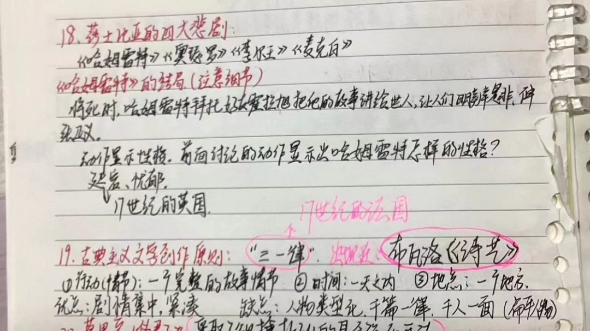 18. 莎士比亚的四大悲剧:
《哈姆雷特》《奥瑟罗》《李尔王》《麦克白》
《哈姆雷特》的结局(注意细节)
将死时,哈姆雷特拜托好友霍拉旭把他的故事讲给世人,让人们明辨是非,伸
张正义。
动作显示性格。前面讨论的动作显示出哈姆雷特怎样的性格?
延宕、忧郁。
17世纪的英国.
17世纪的法国
19. 古典主义文学创作原则: "三一律". 布瓦洛《诗艺》
①行动(情节):一个完整的故事情节 ②时间:一天之内 ③地点:一个地方.
优点:剧情集中,紧凑 缺点:人物类型化,千篇一律,千人一面(扁平人物)